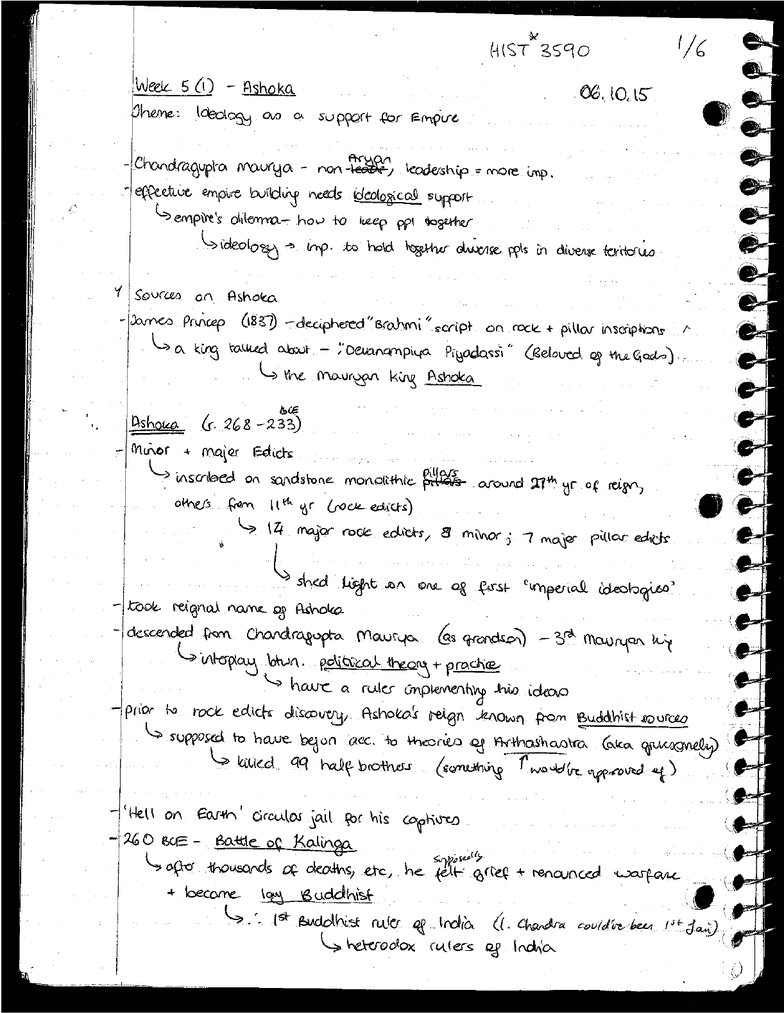 HIST* 3590 1/6
Week 5 (1) - Ashoka 06.10.15
Theme: Ideology as a support for Empire
- Chandragupta Maurya - non Aryan, leadership = more imp.
- effective empire building needs ideological support
↳ empire's dilema - how to keep ppl together
↳ ideology → imp. to hold together diverse ppls in diverse teritories
Sources on Ashoka
- James Princep (1837) - deciphered "Brahmi" script on rock + pillar inscriptions
↳ a king talked about - "Devanampiya Piyadassi" (Beloved of the Gods)
↳ the Mauryan king Ashoka
Ashoka (r. 268 - 233 BCE)
- Minor + major Edicts
↳ inscribed on sandstone monolithic pillars around 27th yr of reign,
others from 11th yr (rock edicts)
↳ 14 major rock edicts, 8 minor; 7 major pillar edicts
↳ shed light on one of first 'imperial ideologies'
- took reignal name of Ashoka
- descended from Chandragupta Maurya (as grandson) - 3rd Mauryan king
↳ interplay btwn. political theory + practice
↳ have a ruler implementing his ideas
- prior to rock edicts discovery, Ashoka's reign known from Buddhist sources
↳ supposed to have begun acc. to theories of Arthashastra (aka gruesomely)
↳ killed 99 half brothers (something ↑ would've approved of)
- 'Hell on Earth' circular jail for his captives
- 260 BCE - Battle of Kalinga
↳ after thousands of deaths, etc, he supposedly felt grief + renounced warfare
+ became lay Buddhist
↳ ∴ 1st Buddhist ruler of India (1. Chandra could've been 1st Jain)
↳ heterodox rulers of India